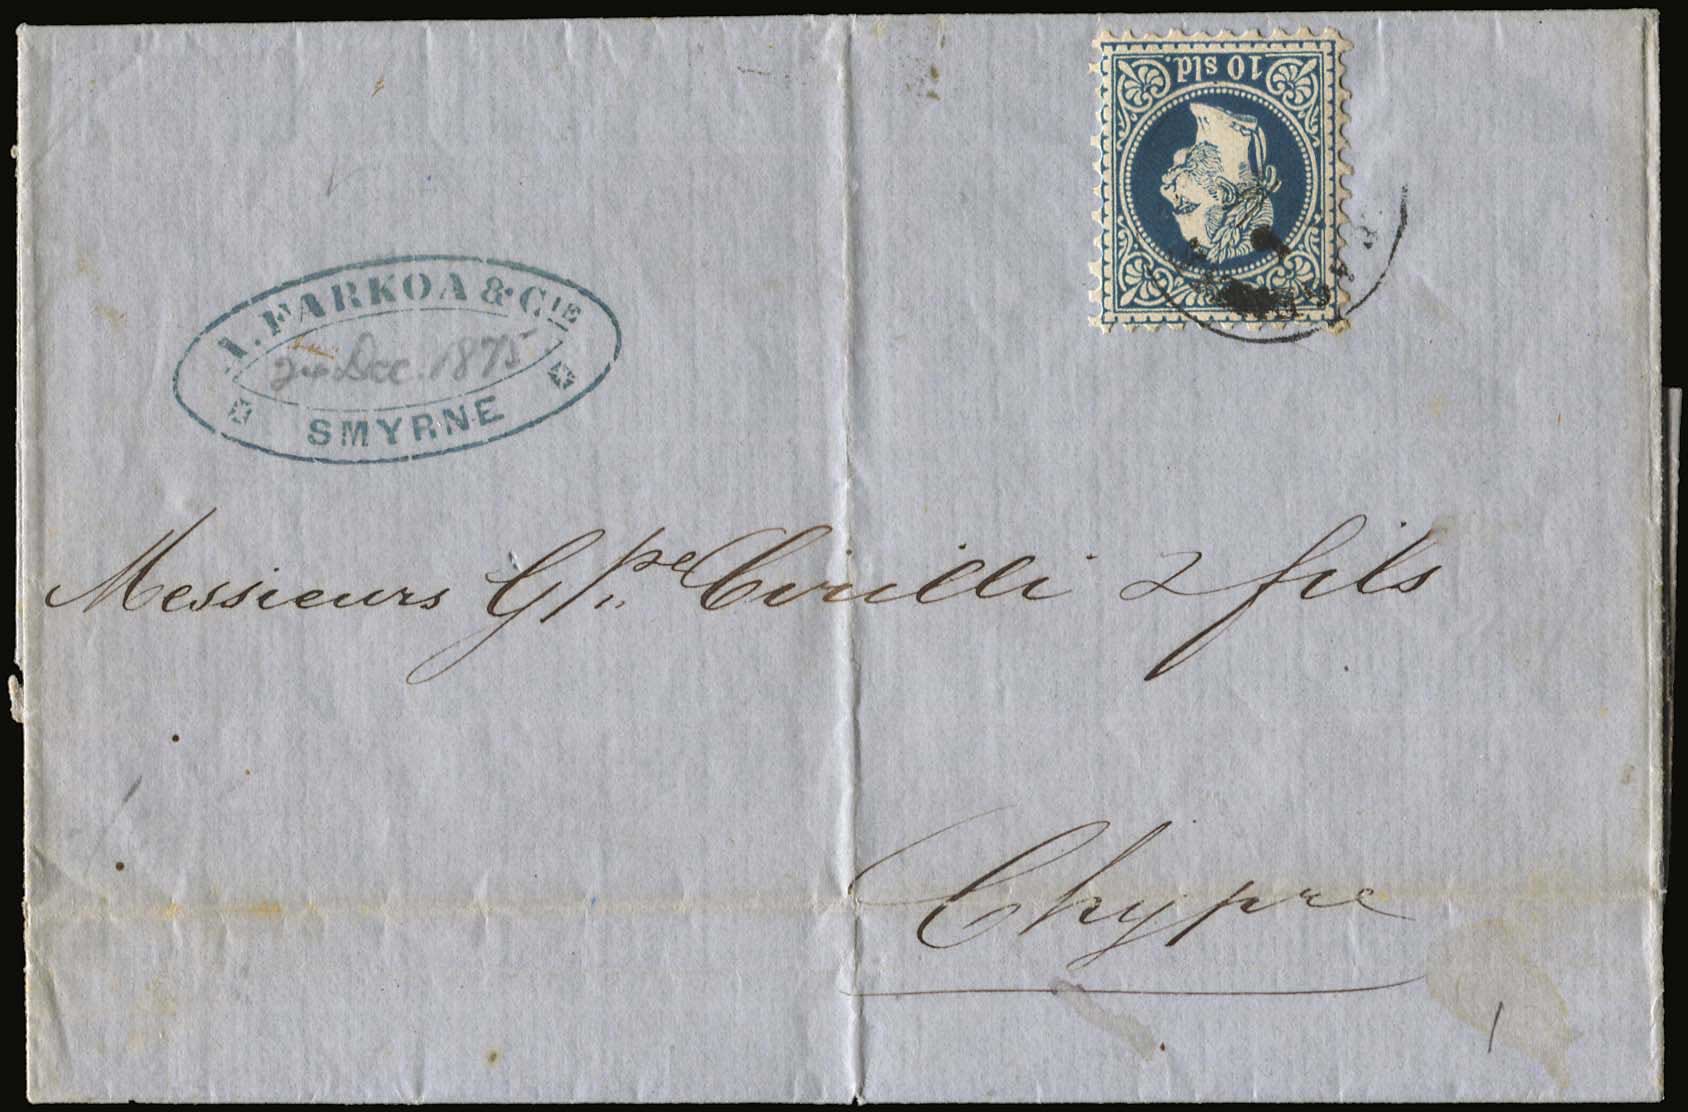 10 sld.
A. FARKOA & CIE
24 Dec. 1875
SMYRNE
Messieurs Gpe Cirilli & fils
Chypre